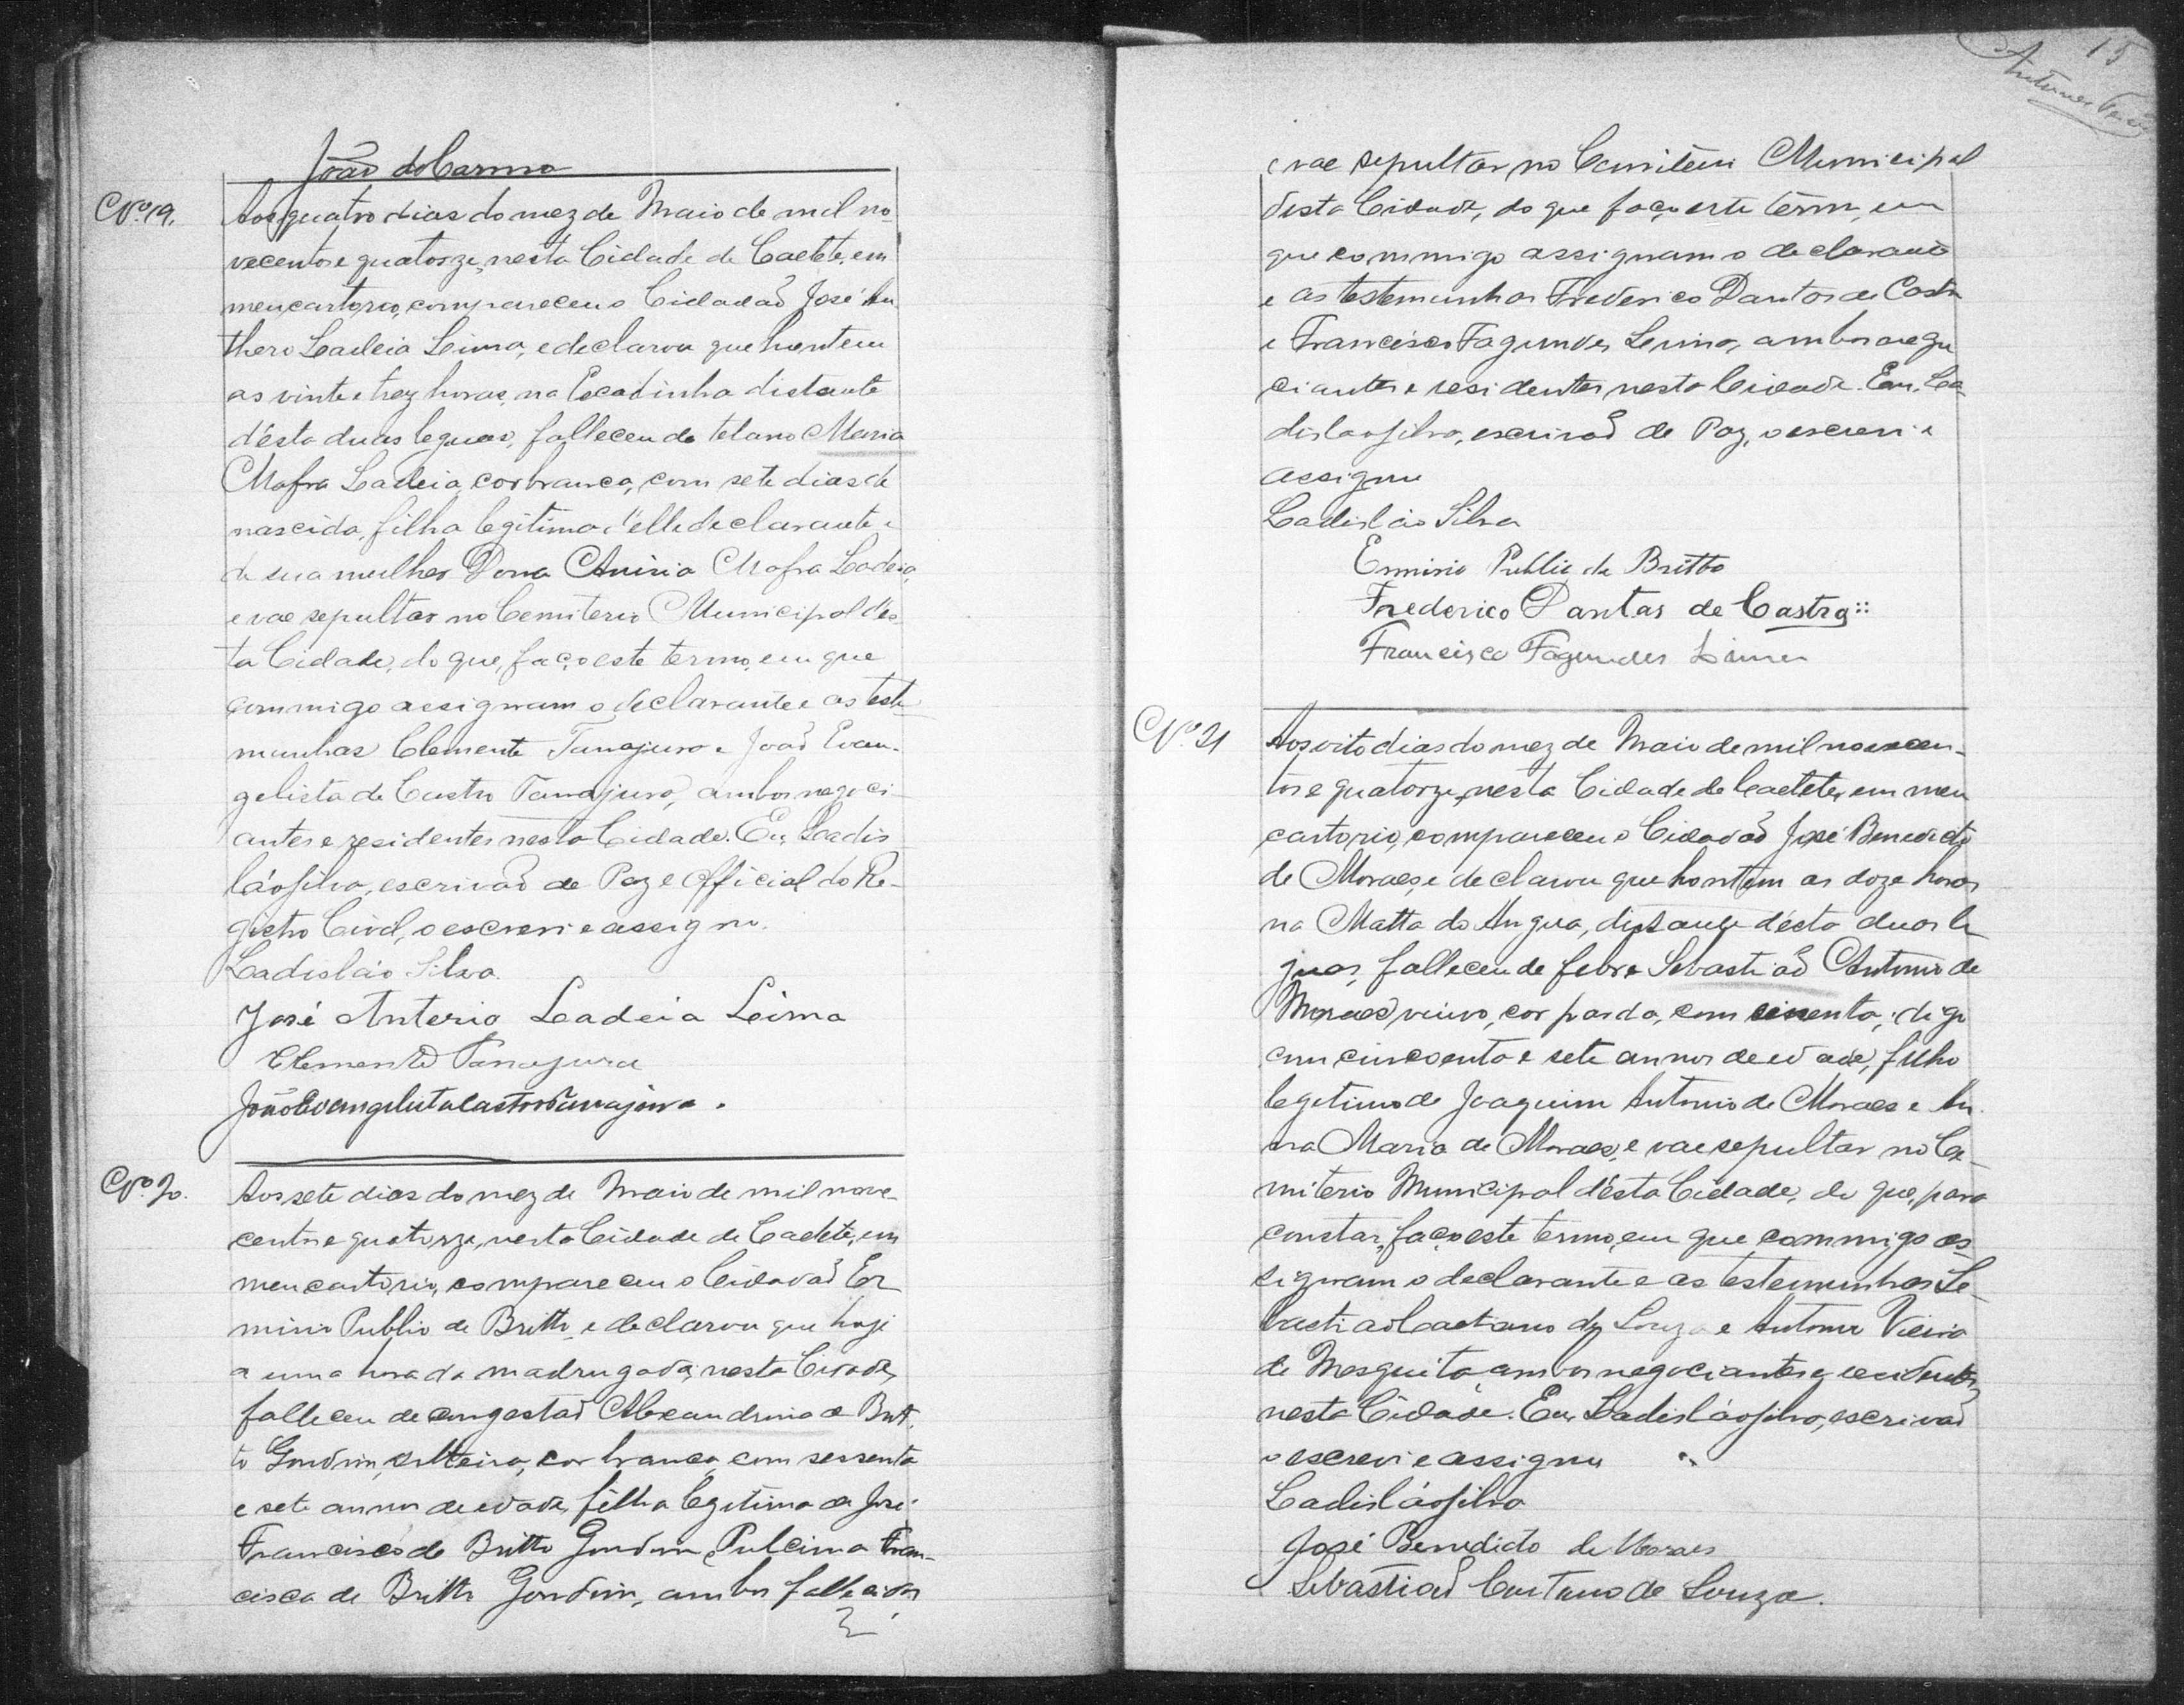 João do Carmo
Nº 19.
Aos quatro dias do mez de Maio de mil no-
vecentos e quatorze, nesta Cidade de Caeteté, em
meu cartorio, compareceu o Cidadaõ José An
thero Ladeia Lima, e declarou que hontem
as vinte e trez horas, na Escadinha distante
d'ésta duas leguas, falleceu de tetano Maria
Mafra Ladeia, cor branca, com sete dias de
nascida, filha legitima d'elle declarante e
de sua mulher Dona Anisia Mafra Ladeia,
e vae sepultar no Cemiterio Municipal d'es-
ta Cidade, do que, faço este termo, em que
commigo assignam o declarante e as teste
munhas Clemente Tanajura e João Evan-
gelista de Castro Tanajura, ambos negoci-
antes e residentes nesta Cidade. Eu, Ladis
láo Silva, escrivaõ de Paz e Official do Re-
gistro Civil, o escrevi e assigno.
Ladisláo Silva.
José Anterio Ladeia Lima
Clemente Tanajura
João Evangelista Castro Tanajura.
Nº 20.
Aos sete dias do mez de Maio de mil nove-
centos e quatorze, nesta Cidade de Caeteté, em
meu cartorio, compareceu o Cidadaõ Er
minio Publio de Britto, e declarou que hoje
a uma hora da madrugada, nesta Cidade,
falleceu de congestaõ Alexandrina de Brit-
to Gondim, solteira, cor branca, com sessenta
e sete annos de edade, filha legitima de José
Francisco de Britto Gondim e Pulcima Fran-
cisca de Britto Gondim, ambos fallecidos
15
Antunes
e vae sepultar no Cemiterio Municipal
desta Cidade, do que faço este têrmo, em
que commigo assignam o declarante
e as testemunhas Frederico Dantas de Castro
e Francisco Fagundes Lima, ambos nego
ciantes e residentes nesta Cidade. Eu, La-
disláo Silva, escrivaõ de Paz, o escrevi e
assigno
Ladisláo Silva
Erminio Publio de Britto
Frederico Dantas de Castro::
Francisco Fagundes Lima
Nº 21
Aos oito dias do mez de Maio de mil novecen-
tos e quatorze, nesta Cidade de Caeteté, em meu
cartorio, compareceu o Cidadaõ José Benedicto
de Moraes, e declarou que hontem as doze horas
na Matta do Angua, distante d'ésta duas le
guas, falleceu de febre Sebastiaõ Antonio de
Moraes viuvo, cor parda, com sessenta, digo
com cincoenta e sete annos de edade, filho
legitimo de Joaquim Antonio de Moraes e An
na Maria de Moraes, e vae sepultar no Ce-
miterio Municipal d'ésta Cidade, do que, para
constar, faço este termo, em que commigo as-
signam o declarante e as testemunhas Se-
bastiaõ Caetano de Souza e Antonio Vieira
de Mesquita, ambos negociantes e residentes
nesta Cidade. Eu, Ladisláo Silva, escrivaõ
o escrevi e assigno
Ladisláo Silva
José Benedicto de Moraes
Sebastiaõ Caetano de Souza.